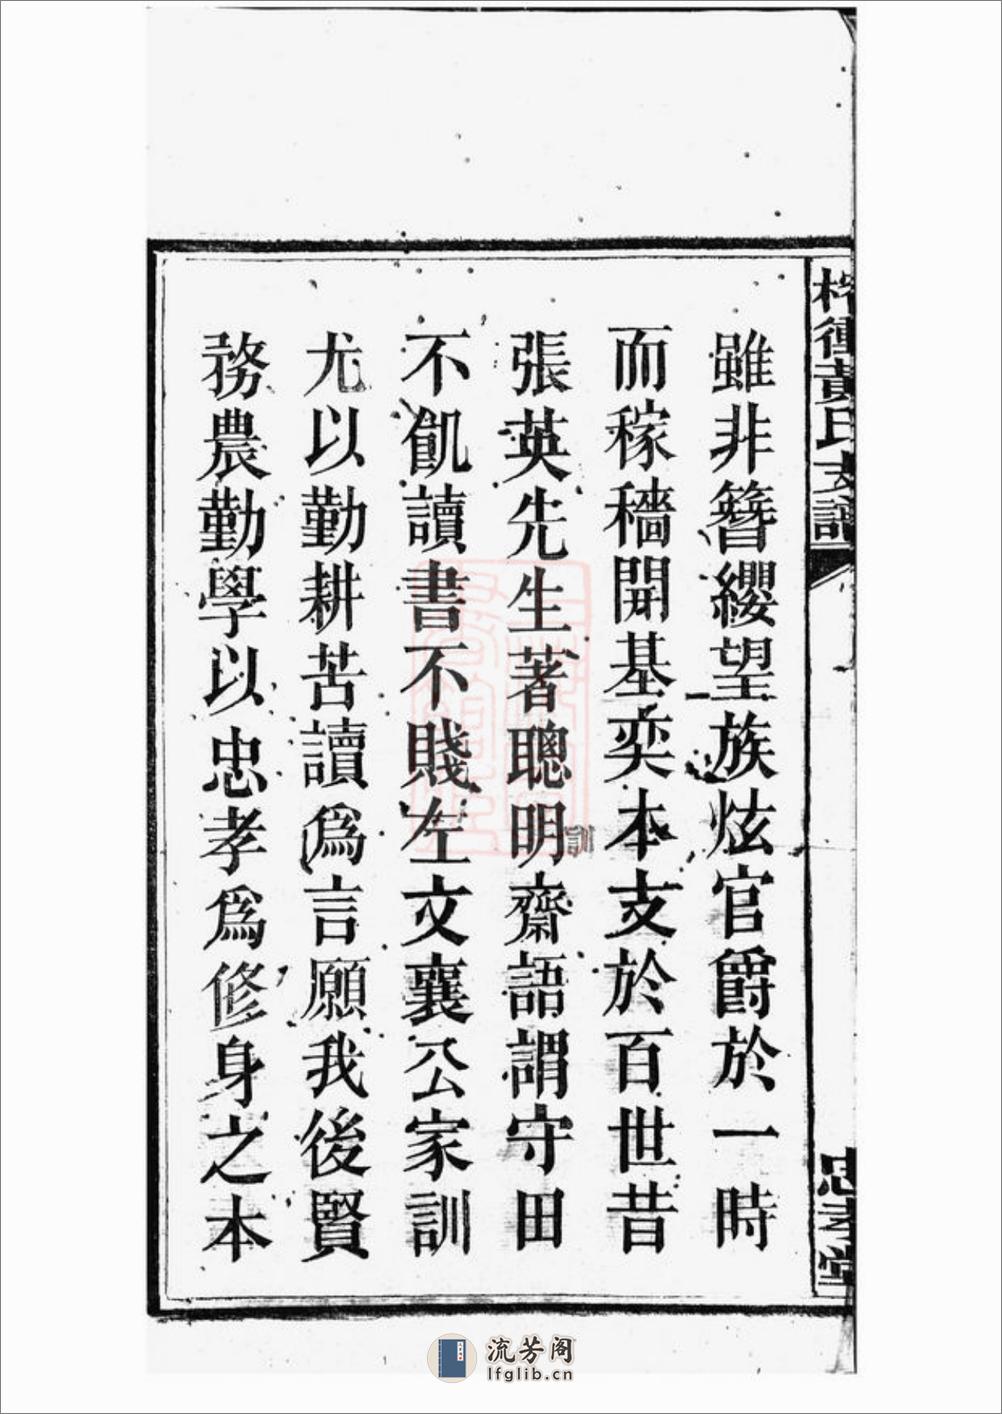 衝黃氏支譜
忠孝堂
雖非簪纓望族炫官爵於一時
而稼穡開基奕本支於百世昔
張英先生著聰明齋語謂守田
訓
不飢讀書不賤左文襄公家訓
尤以勤耕苦讀爲言願我後賢
務農勤學以忠孝爲修身之本
流芳阁
lfglib.cn